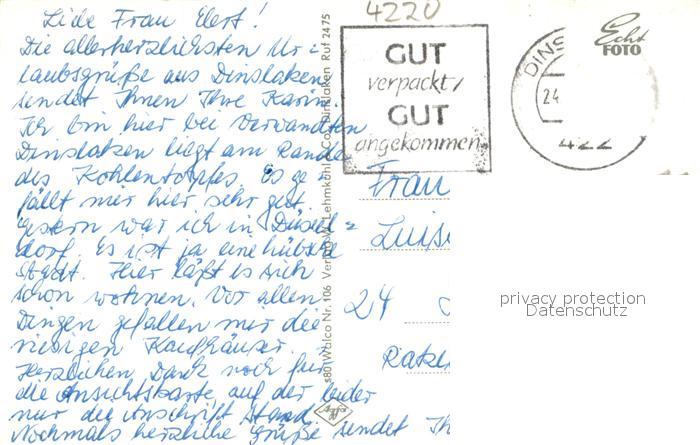 Liebe Frau Elert!
Die allerherzlichsten Ur=
laubsgrüße aus Dinslaken
sendet Ihnen Ihre Karin.
Ich bin hier bei Verwandten
Dinslaken liegt am Rande
des Kohlentopfes. Es ge=
fällt mir hier sehr gut.
Gestern war ich in Düssel=
dorf. Es ist ja eine hübsche
Stadt. Hier läßt es sich
schon wohnen. Vor allen
Dingen gefallen mir die
riesigen Kaufhäuser.
Herzlichen Dank noch für
die Ansichtskarte, auf der leider
nur die Anschrift stand
Nochmals herzliche Grüße sendet Ih
S801 Walco Nr. 106 Verlag W. Lehmkühl Co. Dinslaken Ruf 2475
Agfa
4220
GUT
verpackt/
GUT
angekommen
DINS
24
422
Echt
FOTO
Frau
Luise
24
Ratze
privacy protection
Datenschutz